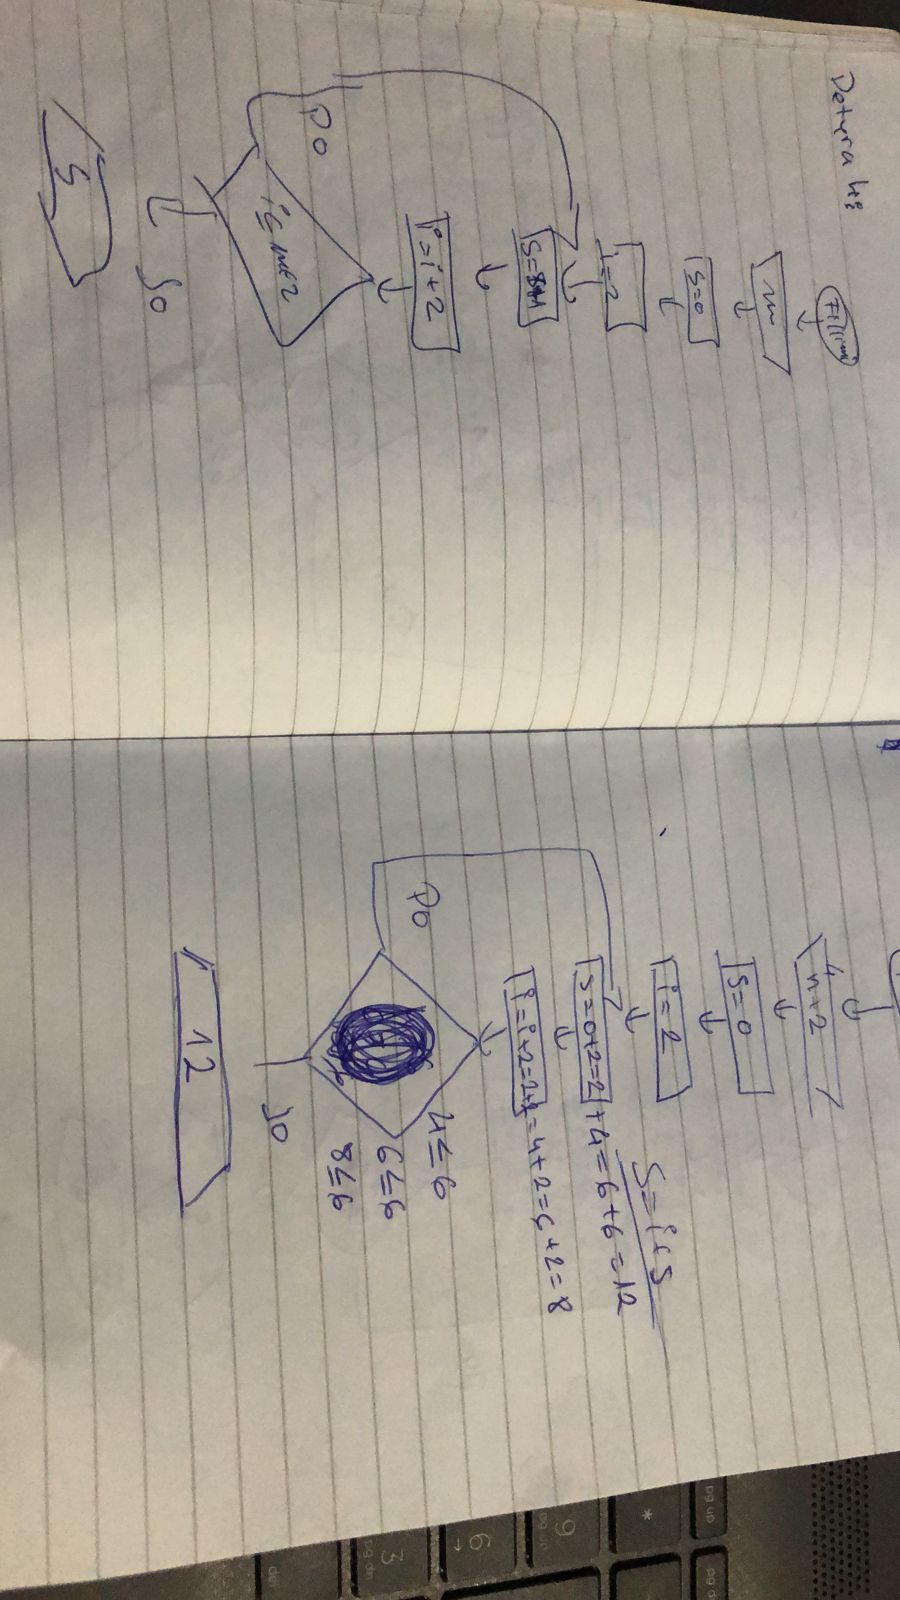 Detyra 4:
Fillimi
m
S=0
i=2
S=S+i
i=i+2
i≤m+2
Po
Jo
S
4
n+2
S=0
i=2
S=i+S
S=0+2=2+4=6+6=12
i=i+2=2+2=4+2=6+2=8
Po
4≤6
6≤6
8≤6
Jo
12
pg up
*
9
pg up
6
3
pg dn
del